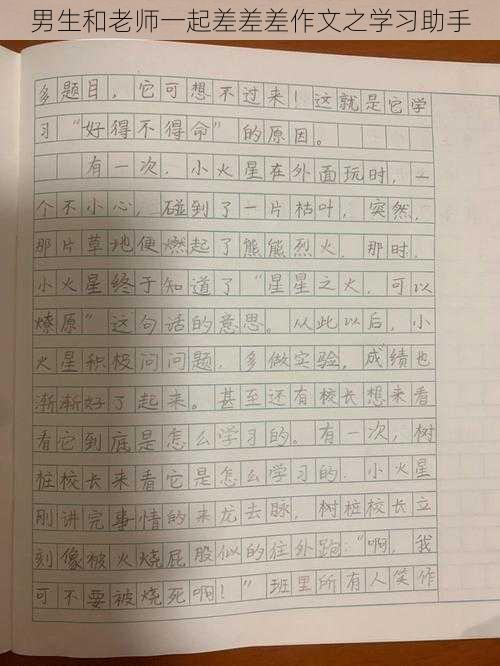 男生和老师一起差差差作文之学习助手
多题目，它可想不过来！这就是它学
习“好得不得命”的原因。
有一次，小火星在外面玩时，一
个不小心，碰到了一片枯叶，突然，
那片草地便燃起了熊熊烈火，那时，
小火星终于知道了“星星之火，可以
燎原”这句话的意思。从此以后，小
火星积极问问题，多做实验，成绩也
渐渐好了起来。甚至还有校长想来看
看它到底是怎么学习的。有一次，树
桩校长来看它是怎么学习的，小火星
刚讲完事情的来龙去脉，树桩校长立
刻像被火烧屁股似的往外跑：“啊，我
可不要被烧死啊！”班里所有人笑作